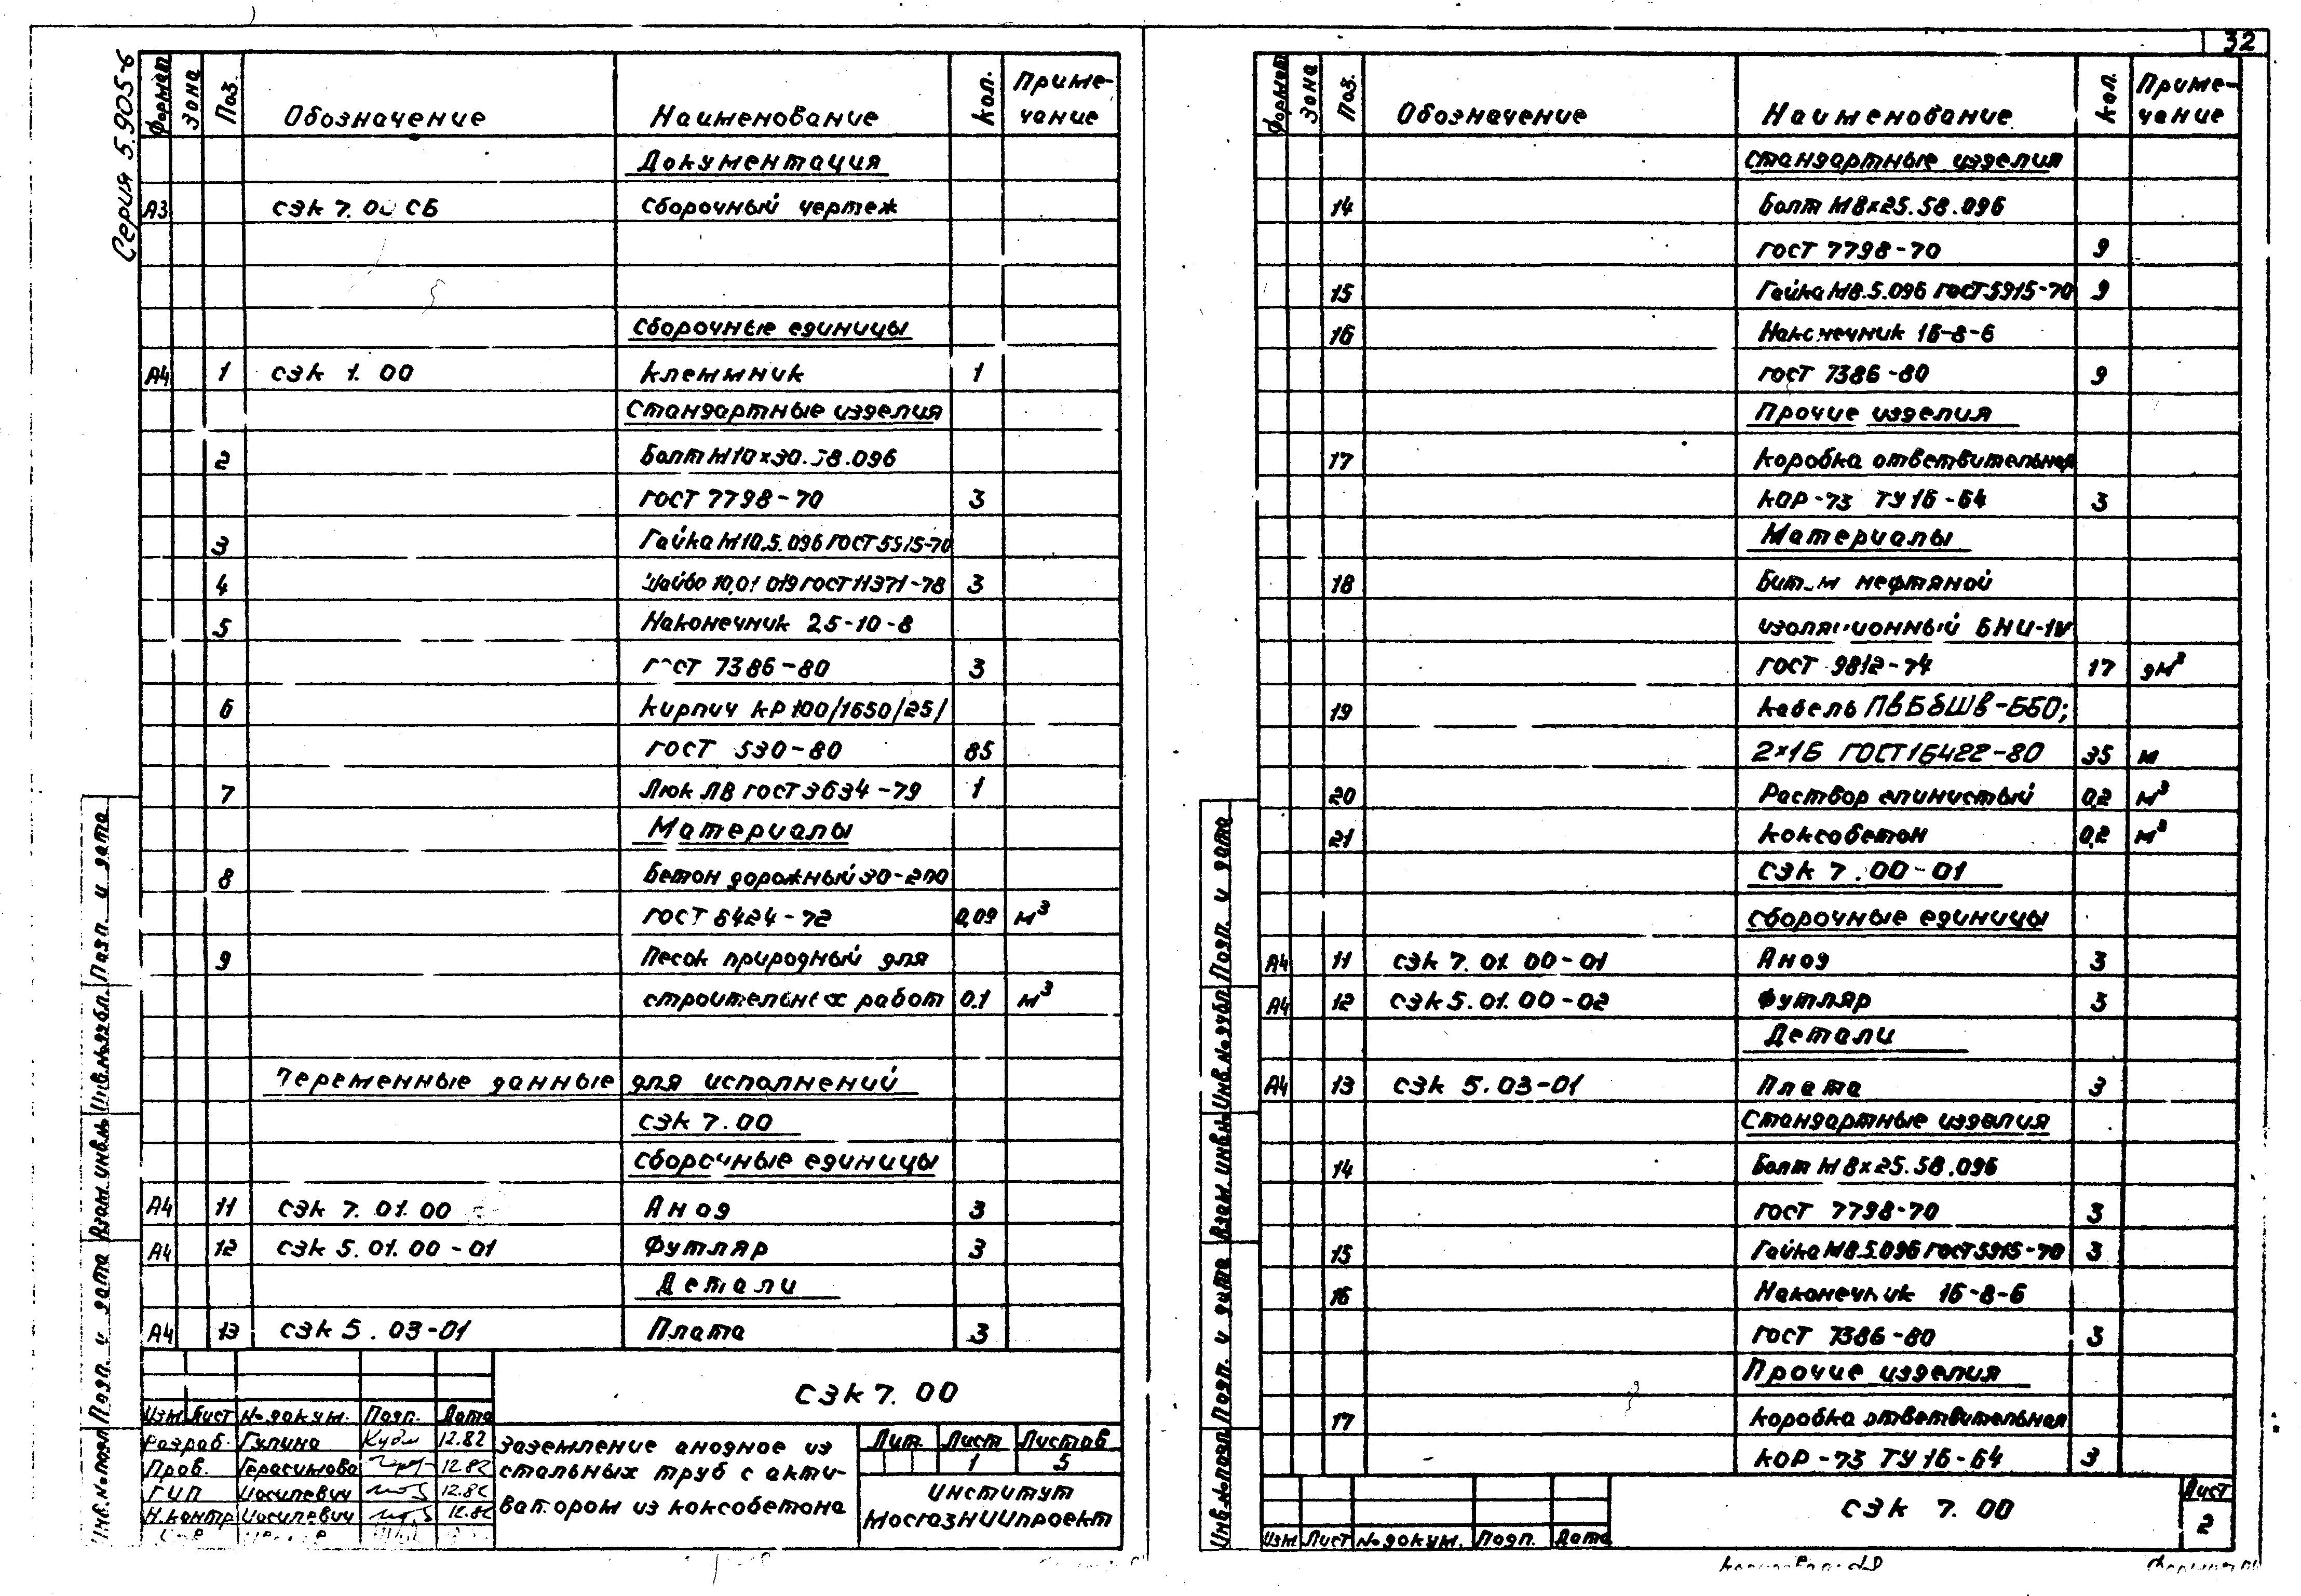 32
Серия 5.905-6
Формат Зона Поз. Обозначение Наименование Кол. Приме-
чание
Документация
А3 СЗК 7.00 СБ Сборочный чертеж
Сборочные единицы
А4 1 СЗК 1.00 Клеммник 1
Стандартные изделия
2 Болт М10×30.58.096
ГОСТ 7798-70 3
3 Гайка М10.5.096 ГОСТ 5915-70
4 Шайба 10.01 019 ГОСТ 11371-78 3
5 Наконечник 25-10-8
ГОСТ 7386-80 3
6 Кирпич КР100/1650/25/
ГОСТ 530-80 85
7 Люк ЛВ ГОСТ 3634-79 1
Материалы
8 Бетон дорожный 30-200
ГОСТ 8424-72 0,09 м³
9 Песок природный для
строительных работ 0.1 м³
Переменные данные для исполнений
СЗК 7.00
Сборочные единицы
А4 11 СЗК 7.01.00 Анод 3
А4 12 СЗК 5.01.00-01 Футляр 3
Детали
А4 13 СЗК 5.03-01 Плата 3
СЗК 7.00
Изм Лист № докум. Подп. Дата
Разраб. Гулина 12.82
Пров. Герасимова 12.82
ГИП Иосилевич 12.82
Н.контр Иосилевич 12.82
Заземление анодное из
стальных труб с акти-
ватором из коксобетона
Лит. Лист Листов
1 5
Институт
МосгазНИИпроект
Инв.№ подл Подп. и дата Взам. инв.№ Инв.№ дубл. Подп. и дата
Формат Зона Поз. Обозначение Наименование Кол. Приме-
чание
Стандартные изделия
14 Болт М8×25.58.096
ГОСТ 7798-70 9
15 Гайка М8.5.096 ГОСТ 5915-70 9
16 Наконечник 16-8-6
ГОСТ 7386-80 9
Прочие изделия
17 Коробка ответвительная
КОР-73 ТУ 16-64 3
Материалы
18 Битум нефтяной
изоляционный БНИ-IV
ГОСТ 9812-74 17 дм³
19 Кабель ПвБбШв-660;
2×16 ГОСТ 16422-80 35 м
20 Раствор глинистый 0,2 м³
21 Коксобетон 0,2 м³
СЗК 7.00-01
Сборочные единицы
А4 11 СЗК 7.01.00-01 Анод 3
А4 12 СЗК 5.01.00-02 Футляр 3
Детали
А4 13 СЗК 5.03-01 Плата 3
Стандартные изделия
14 Болт М8×25.58.096
ГОСТ 7798-70 3
15 Гайка М8.5.096 ГОСТ 5915-70 3
16 Наконечник 16-8-6
ГОСТ 7386-80 3
Прочие изделия
17 Коробка ответвительная
КОР-73 ТУ 16-64 3
СЗК 7.00
Лист
2
Изм Лист № докум. Подп. Дата
Инв.№ подл Подп. и дата Взам. инв.№ Инв.№ дубл Подп. и дата